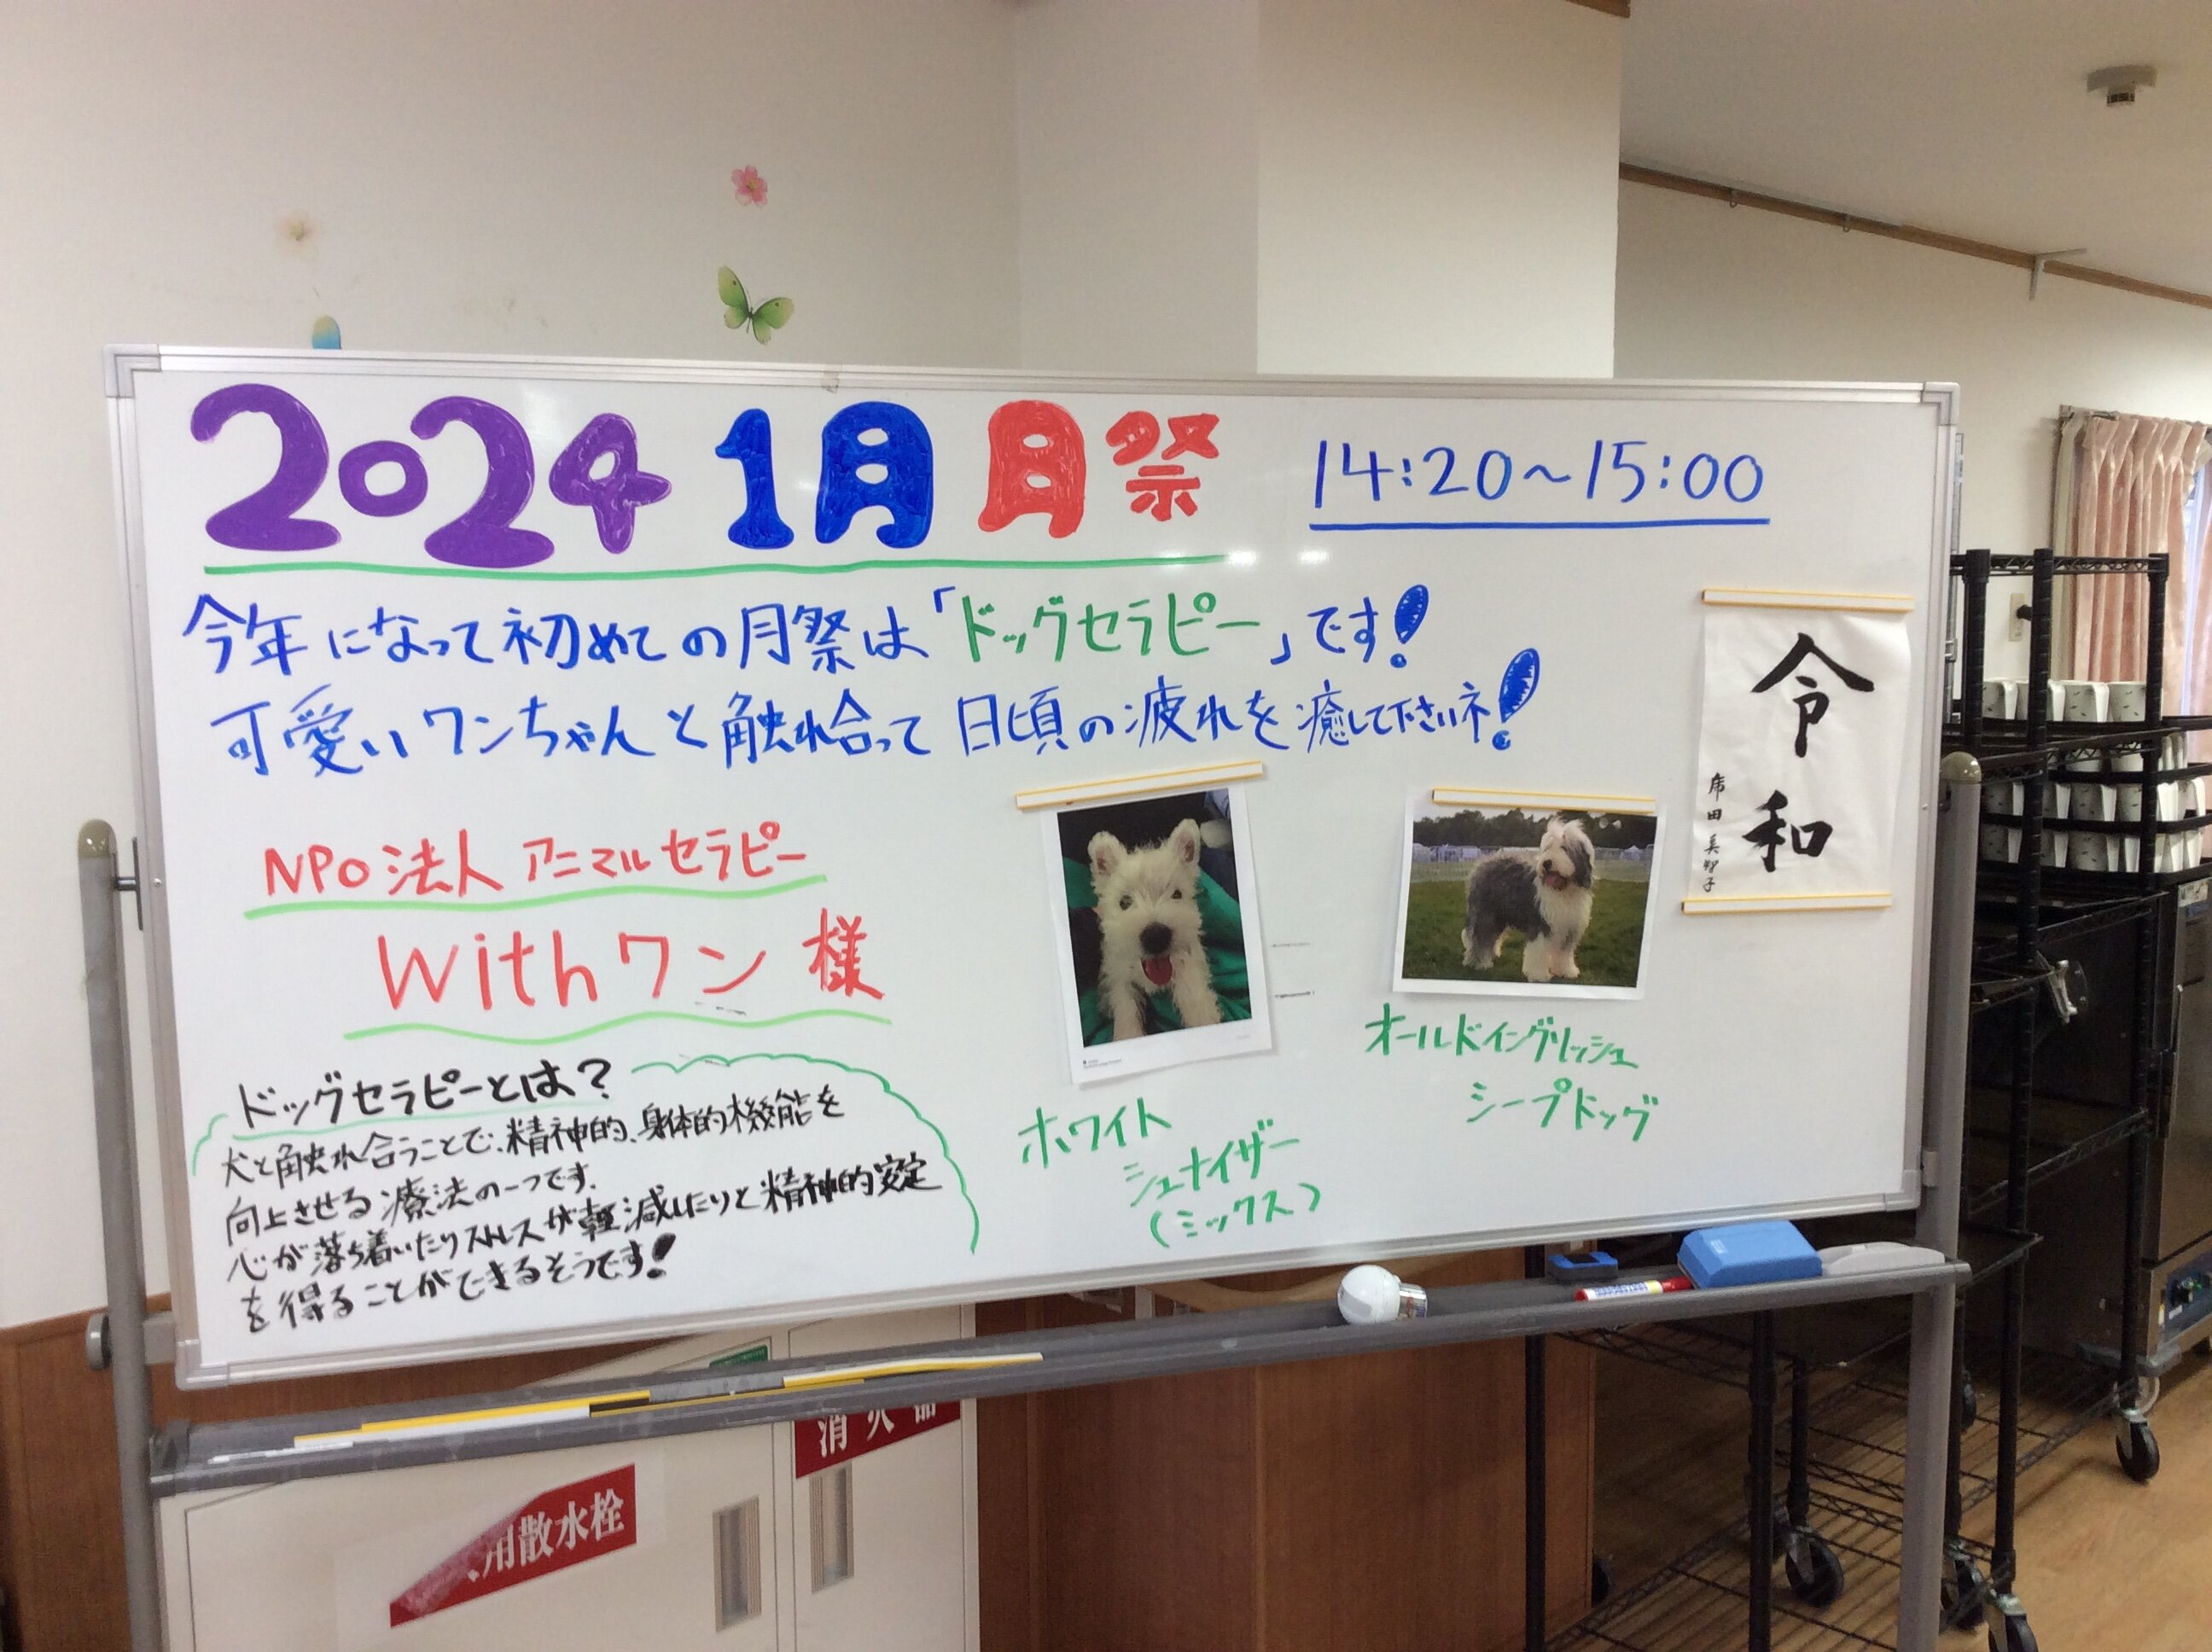 2024 1月 月祭 14:20～15:00
今年になって初めての月祭は「ドッグセラピー」です!
可愛いワンちゃんと触れ合って日頃の疲れを癒して下さいネ!
NPO法人 アニマルセラピー
Withワン 様
ドッグセラピーとは?
犬と触れ合うことで、精神的、身体的機能を
向上させる療法の一つです。
心が落ち着いたりストレスが軽減したりと精神的安定
を得ることができるそうです!
ホワイト
シュナイザー
(ミックス)
オールドイングリッシュ
シープドッグ
令和
田美智子
消火器
用散水栓